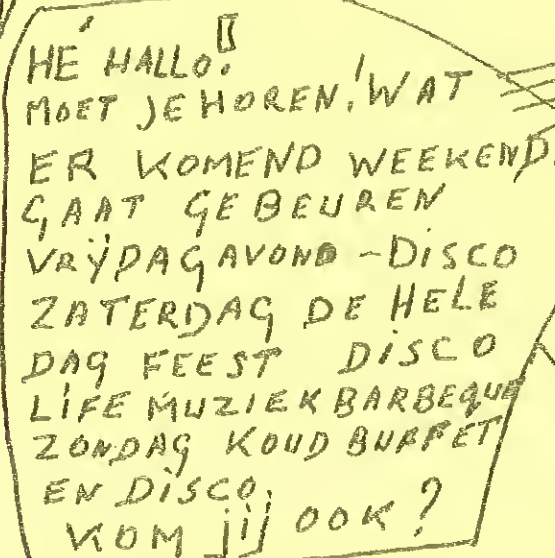 HÉ HALLO!
MOET JE HOREN! WAT
ER KOMEND WEEKEND
GAAT GEBEUREN
VRIJDAGAVOND - DISCO
ZATERDAG DE HELE
DAG FEEST DISCO
LIFE MUZIEK BARBEQUE
ZONDAG KOUD BUFFET
EN DISCO.
KOM jij OOK?